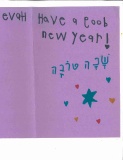 evaH Have a goob
new year!
שָׁנָה טוֹבָה